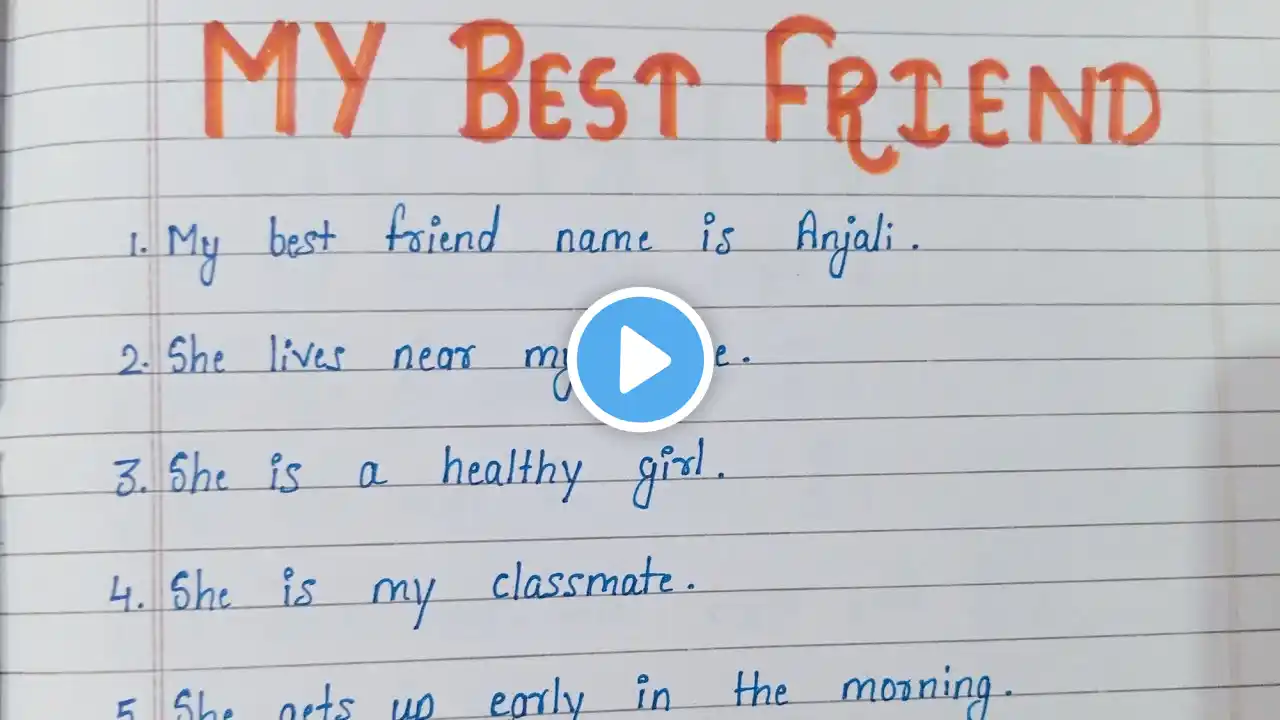 MY BEST FRIEND
1. My best friend name is Anjali.
2. She lives near my
3. She is a healthy girl.
4. She is my classmate.
5. She gets up early in the morning.